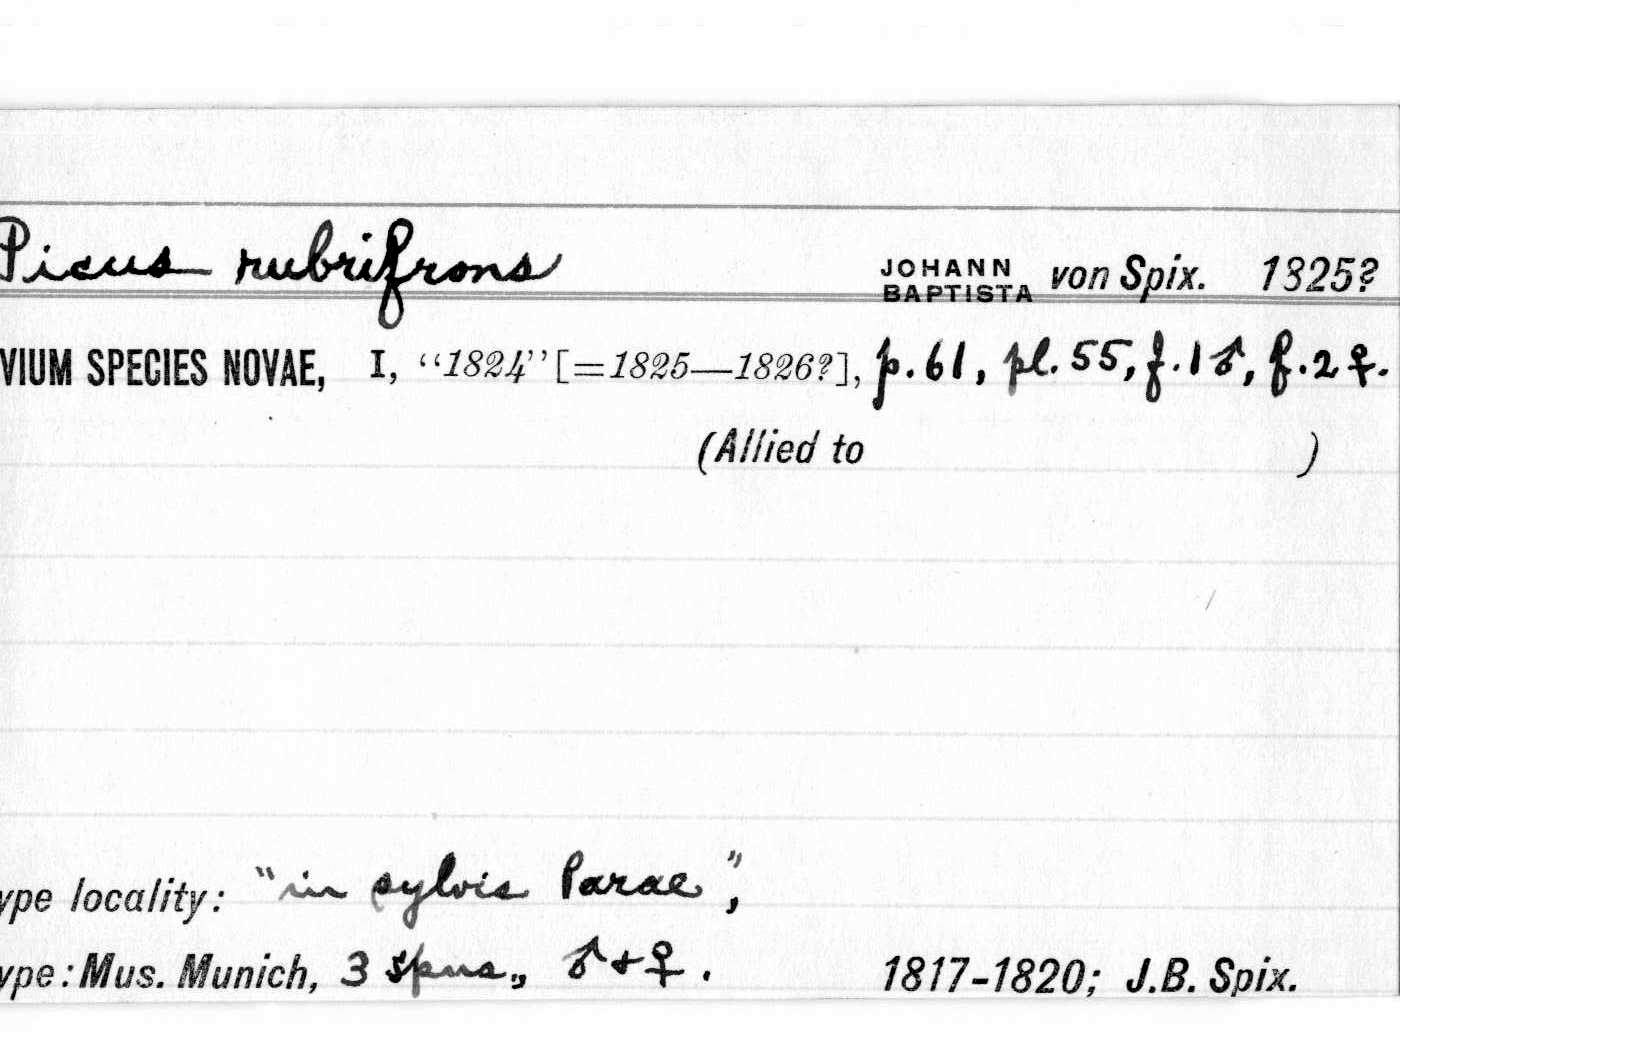 Picus rubrifrons JOHANN BAPTISTA von Spix. 1825?
VIUM SPECIES NOVAE, I, “1824” [=1825—1826?], p. 61, pl. 55, f. 1 ♂, f. 2 ♀.
(Allied to )
ype locality: "in sylvis Parae",
ype: Mus. Munich, 3 spns., ♂ + ♀. 1817-1820; J.B. Spix.